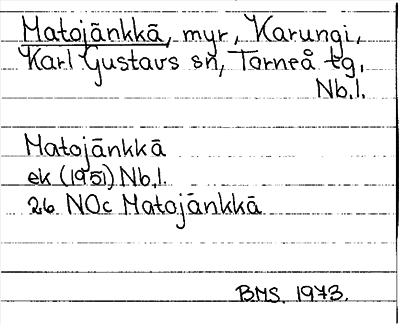 Matojänkkä, myr, Karungi,
Karl Gustavs sn, Torneå tg,
Nb.l.
Matojänkkä
ek (1951) Nb.l.
26 NOc Matojänkkä
BMS. 1973.